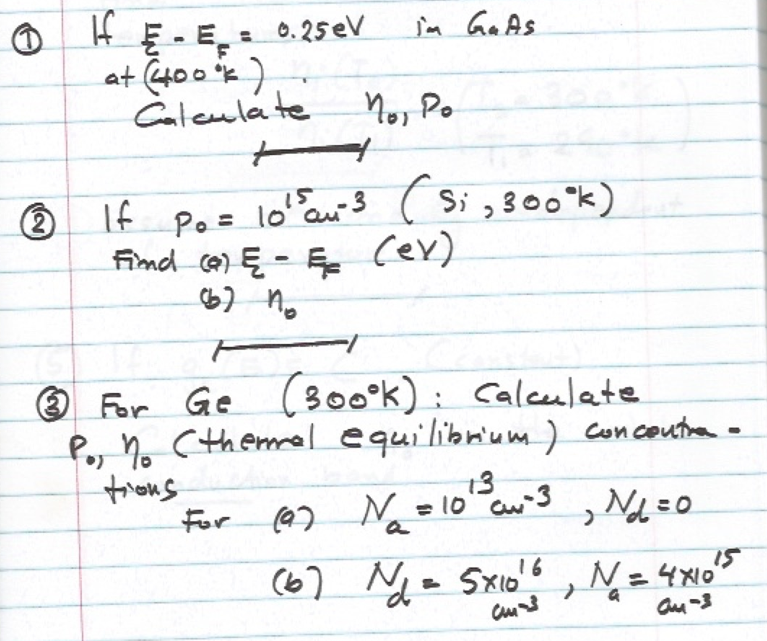 ① If E_c - E_F = 0.25eV in GaAs
at (400°k).
Calculate n₀, P₀
② If p₀ = 10¹⁵ cm⁻³ (Si, 300°k)
Find (a) E_c - E_F (eV)
(b) n₀
③ For Ge (300°k): Calculate
P₀, n₀ (thermal equilibrium) concentra-
tions
For (a) N_a = 10¹³ cm⁻³, N_d = 0
(b) N_d = 5×10¹⁶ cm⁻³, N_a = 4×10¹⁵ cm⁻³